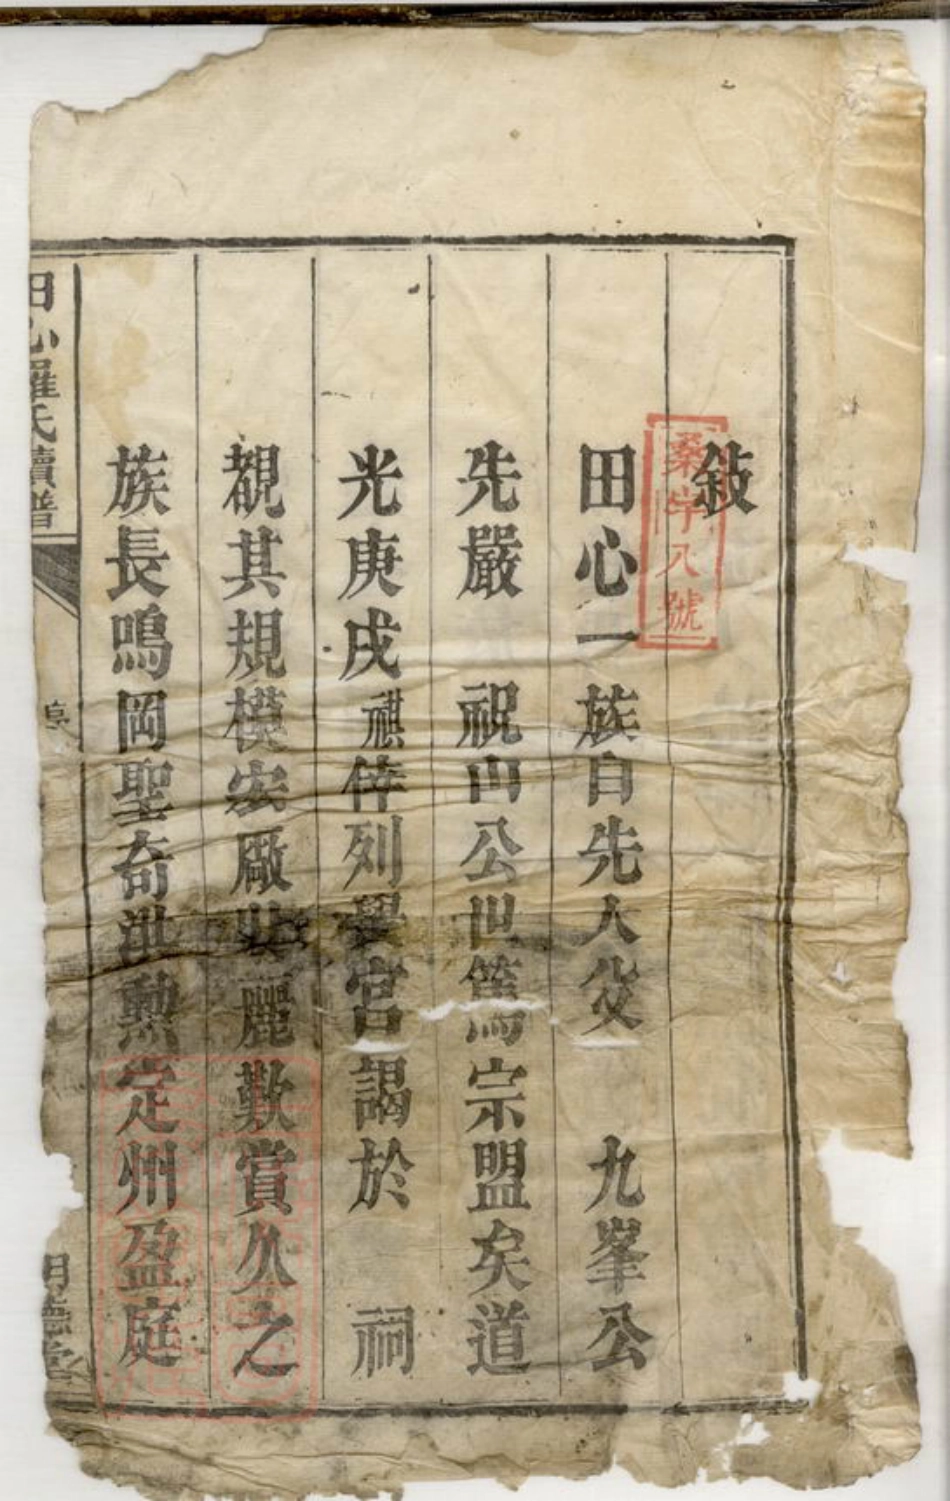 敍
桑字八號
田心一族自先大父　九峯公
先嚴　祝山公世篤宗盟矣道
光庚戌祺倖列黌宮謁於　祠
覩其規模宏厰壯麗歎賞久之
族長鳴岡聖奇洪勲定州盈庭
田心羅氏續譜
明德堂